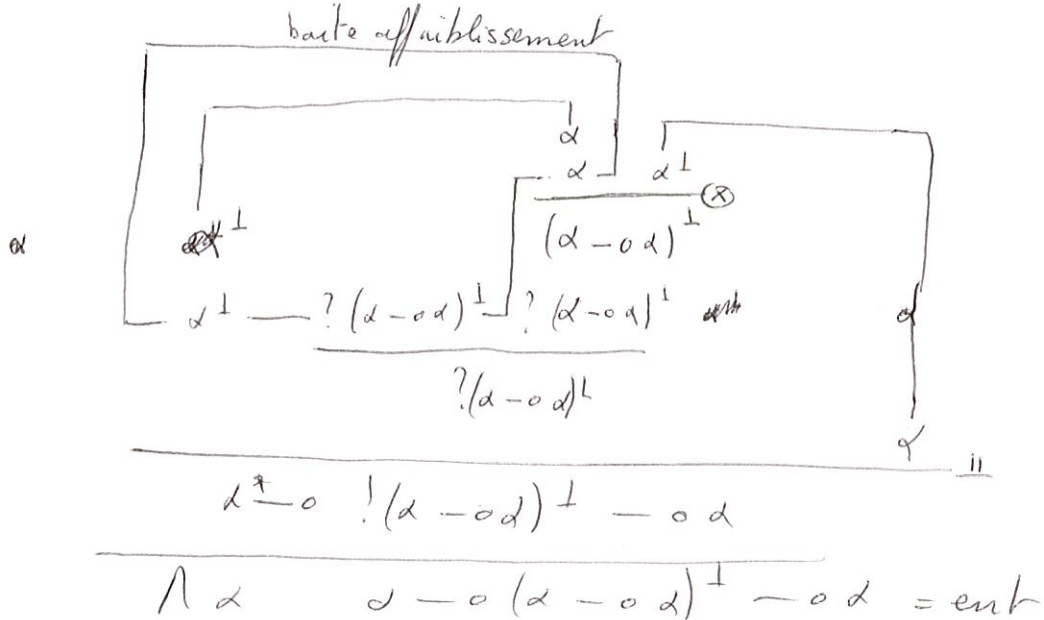 boite affaiblissement
α
α α⊥
⊗
α ⊥ (α -o α)⊥
α⊥ — ?(α -o α)⊥ ?(α -o α)⊥ α
?(α -o α)⊥
α
α -o !(α -o α)⊥ -o α
Λα α -o (α -o α)⊥ -o α = ent